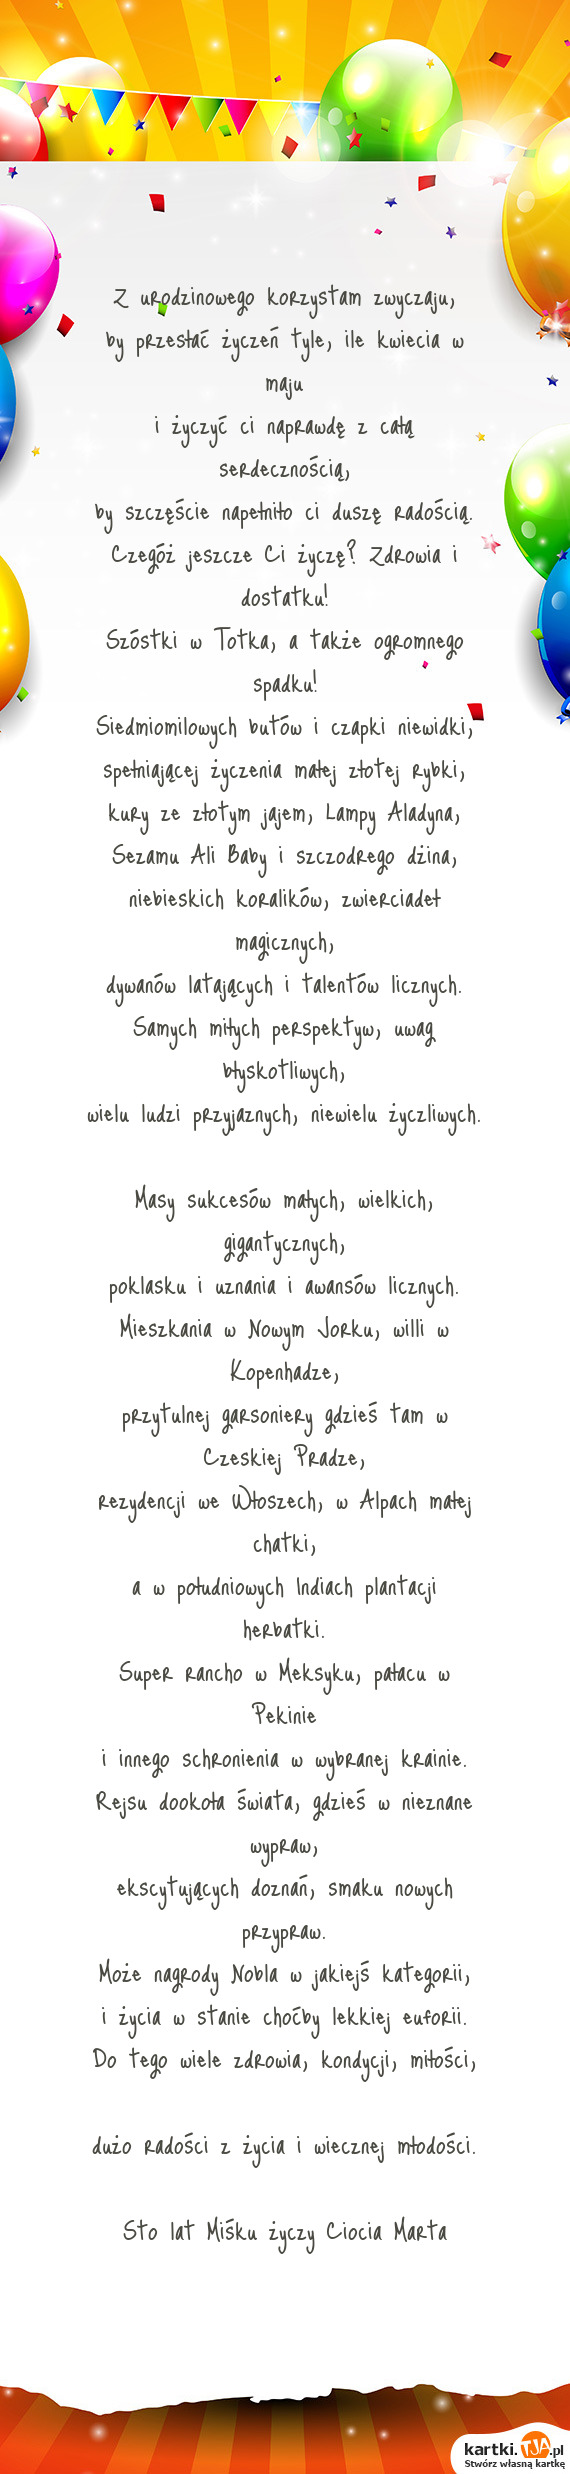 Z urodzinowego korzystam zwyczaju,
by przesłać życzeń tyle, ile kwiecia w
maju
i życzyć ci naprawdę z całą
serdecznością,
by szczęście napełniło ci duszę radością.
Czegóż jeszcze Ci życzę? Zdrowia i
dostatku!
Szóstki w Totka, a także ogromnego
spadku!
Siedmiomilowych butów i czapki niewidki,
spełniającej życzenia małej złotej rybki,
kury ze złotym jajem, Lampy Aladyna,
Sezamu Ali Baby i szczodrego dżina,
niebieskich koralików, zwierciadeł
magicznych,
dywanów latających i talentów licznych.
Samych miłych perspektyw, uwag
błyskotliwych,
wielu ludzi przyjaznych, niewielu życzliwych.
Masy sukcesów małych, wielkich,
gigantycznych,
poklasku i uznania i awansów licznych.
Mieszkania w Nowym Jorku, willi w
Kopenhadze,
przytulnej garsoniery gdzieś tam w
Czeskiej Pradze,
rezydencji we Włoszech, w Alpach małej
chatki,
a w południowych Indiach plantacji
herbatki.
Super rancho w Meksyku, pałacu w
Pekinie
i innego schronienia w wybranej krainie.
Rejsu dookoła świata, gdzieś w nieznane
wypraw,
ekscytujących doznań, smaku nowych
przypraw.
Może nagrody Nobla w jakiejś kategorii,
i życia w stanie choćby lekkiej euforii.
Do tego wiele zdrowia, kondycji, miłości,
dużo radości z życia i wiecznej młodości.
Sto lat Miśku życzy Ciocia Marta
kartki.TJA.pl
Stwórz własną kartkę